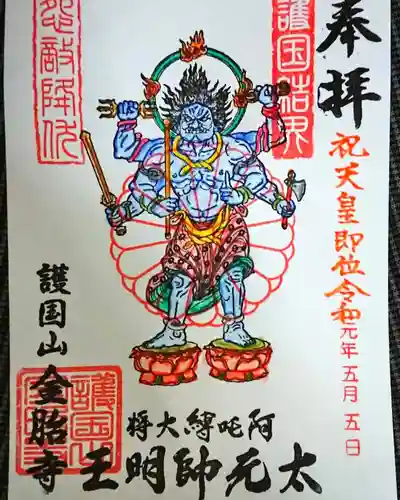 奉拝
祝天皇即位令和元年五月五日
護国結界
怨敵降伏
阿吒縛大将
太元帥明王
護国山
金胎寺
護国